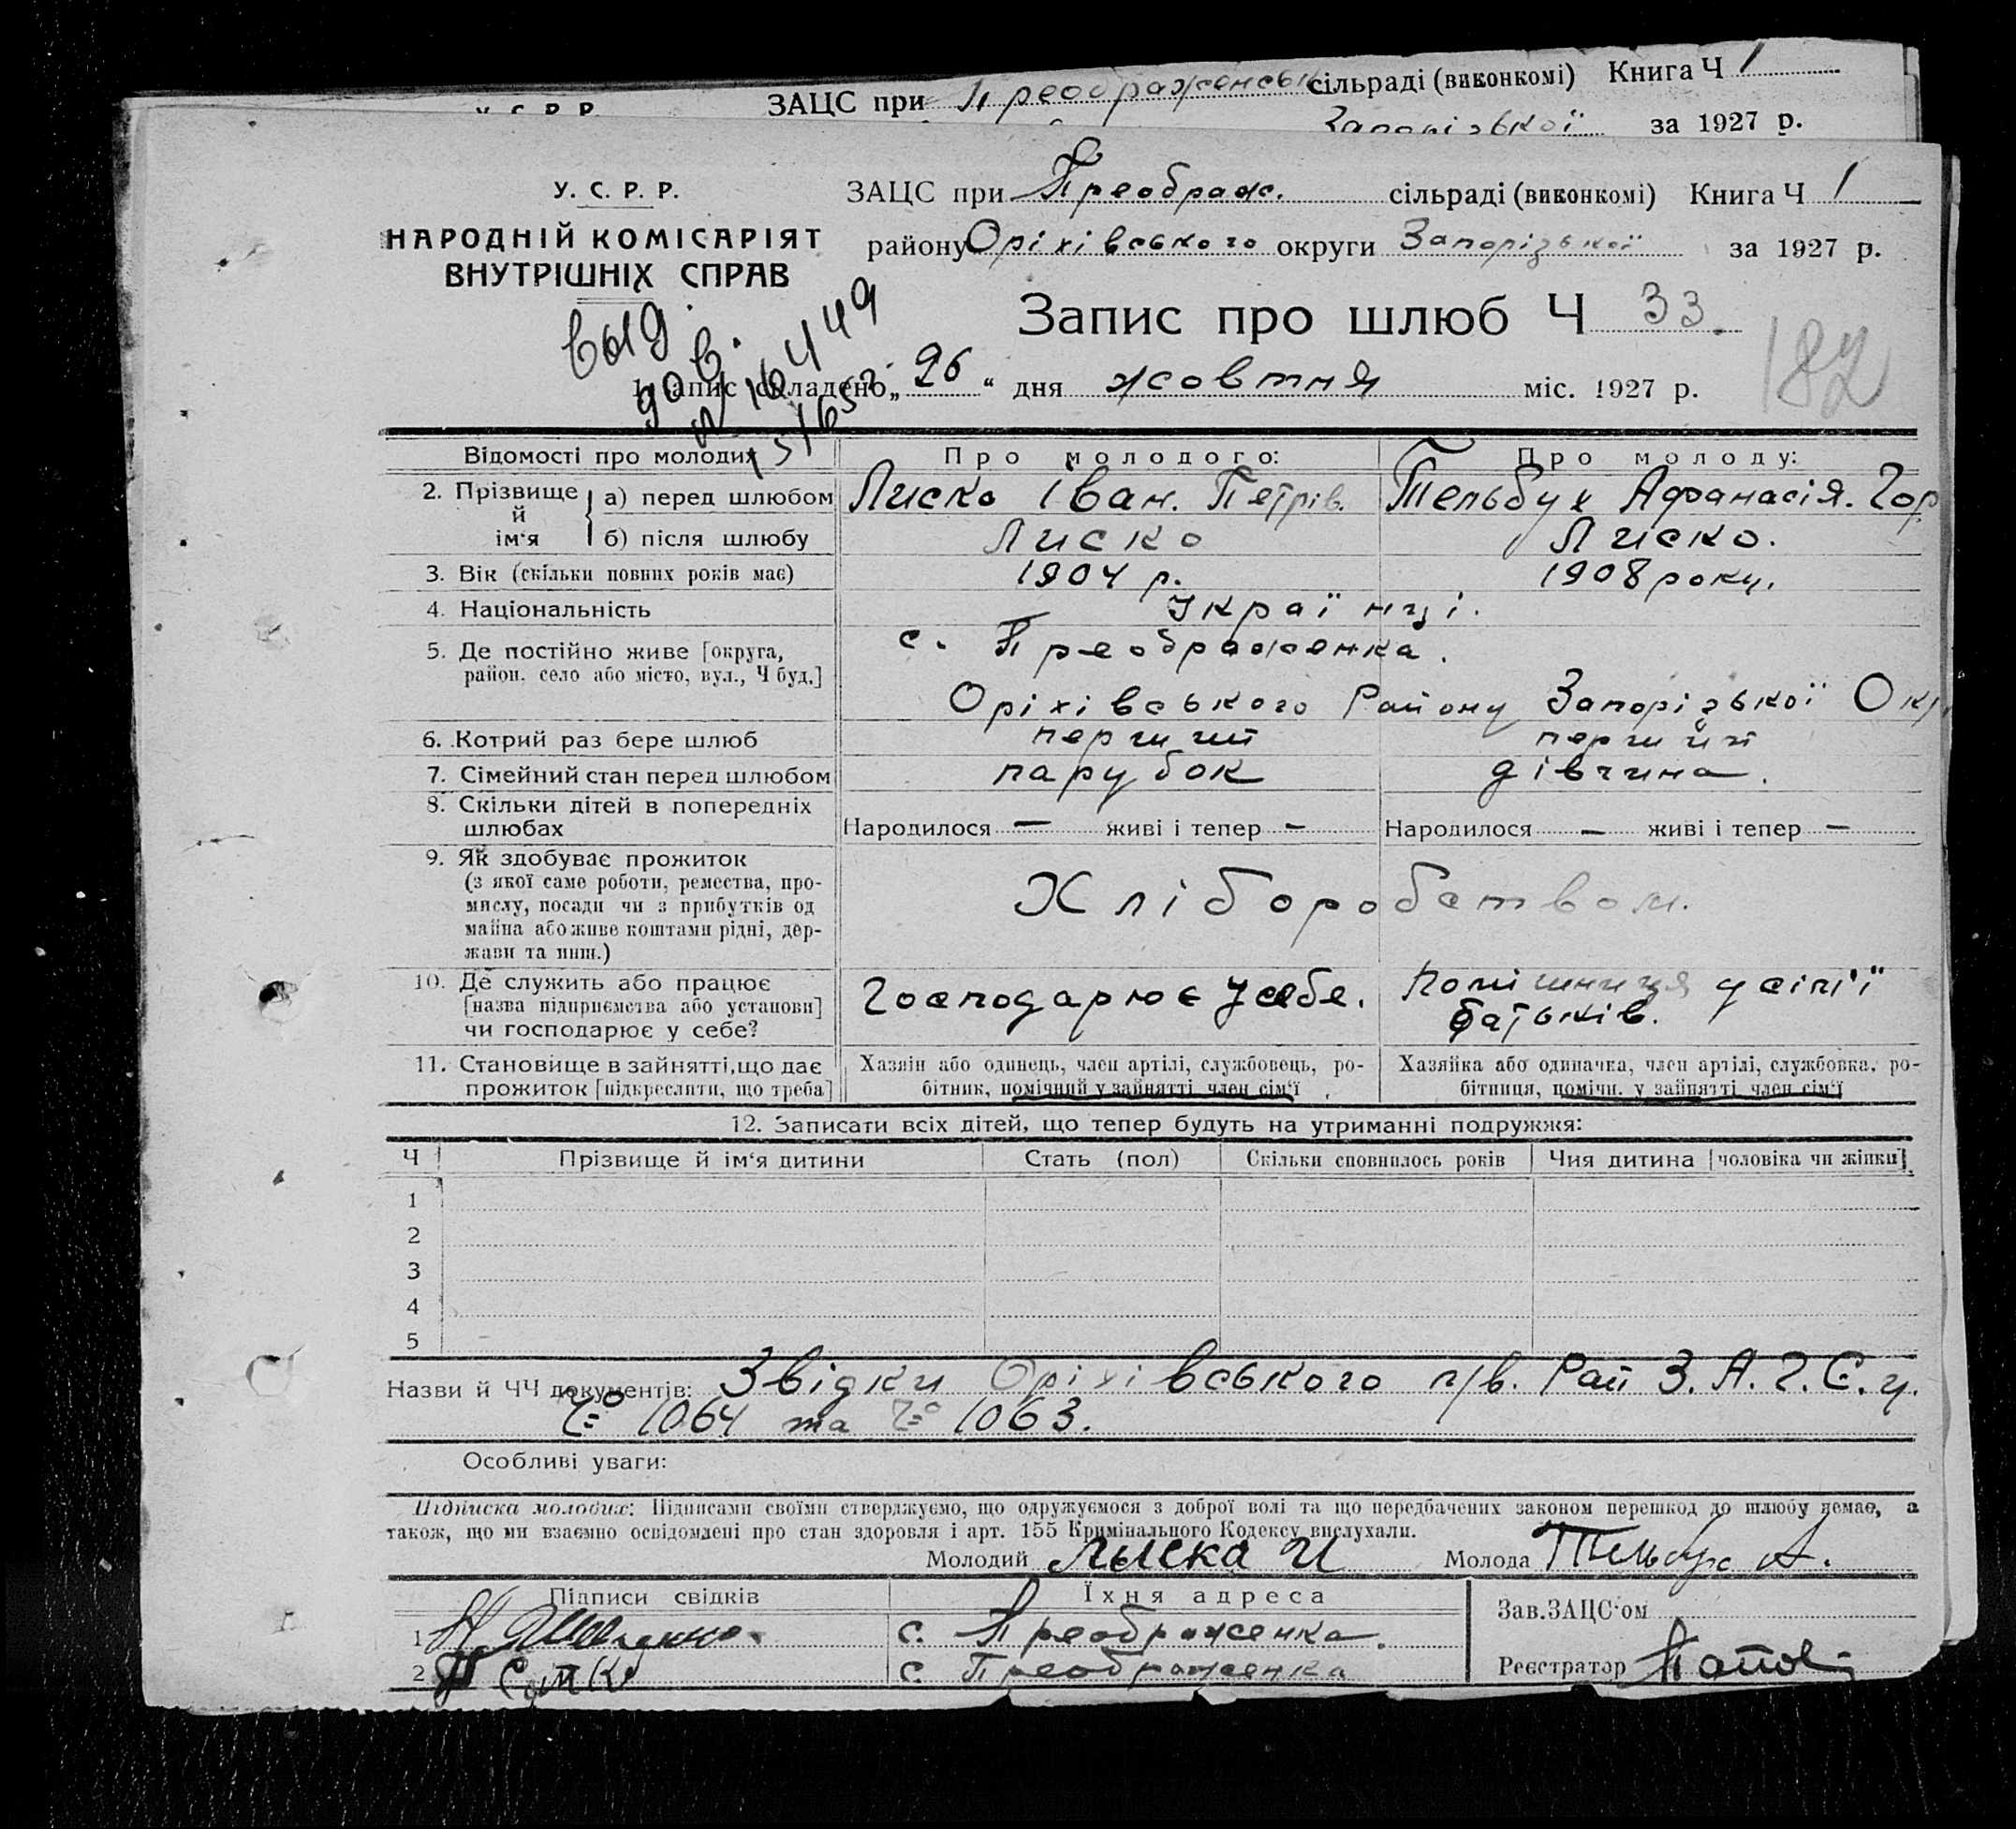 ЗАЦС при Преображенськ сільраді (виконкомі) Книга Ч 1
У. С. Р. Р. Запорізької за 1927 р.
У. С. Р. Р.
НАРОДНІЙ КОМІСАРІЯТ
ВНУТРІШНІХ СПРАВ
ЗАЦС при Преображ. сільраді (виконкомі) Книга Ч 1
району Оріхівського округи Запорізької за 1927 р.
Запис про шлюб Ч 33.
182
выд
1. Запис складено „26“ дня жовтня міс. 1927 р.
Відомості про молодих Про молодого: Про молоду:
2. Прізвище й ім‘я а) перед шлюбом Лиско Іван. Петрів. Тельбух Афанасія. Гор
б) після шлюбу Лиско Лиско.
3. Вік (скільки повних років має) 1904 р. 1908 року.
4. Національність Українці.
5. Де постійно живе [округа, район. село або місто, вул., Ч буд.] с. Преображенка.
Оріхівського Району Запорізької Окр
6. Котрий раз бере шлюб перший перший
7. Сімейний стан перед шлюбом парубок дівчина.
8. Скільки дітей в попередніх шлюбах Народилося — живі і тепер — Народилося — живі і тепер —
9. Як здобуває прожиток
(з якої саме роботи, ремества, про-
мислу, посади чи з прибутків од
майна або живе коштами рідні, дер-
жави та инш.)
Хліборобством.
10. Де служить або працює
[назва підприємства або установи]
чи господарює у себе?
Господарює у себе. Помішниця у сімї
батьків.
11. Становище в зайнятті, що дає
прожиток [підкреслити, що треба]
Хазяїн або одинець, член артілі, службовець, ро-
бітник, помічний у зайнятті член сім‘ї
Хазяйка або одиначка, член артілі, службовка, ро-
бітниця, помічн. у зайнятті член сім‘ї
12. Записати всіх дітей, що тепер будуть на утриманні подружжя:
Ч Прізвище й ім‘я дитини Стать (пол) Скільки сповнилось років Чия дитина [чоловіка чи жінки]
1
2
3
4
5
Назви й ЧЧ документів: Звідки Оріхівського Рай З. А. Г. С. у.
1064 та 1063.
Особливі уваги:
Підписка молодих: Підписами своїми стверджуємо, що одружуємося з доброї волі та що передбачених законом перешкод до шлюбу немає, а
також, що ми взаємно освідомлені про стан здоровля і арт. 155 Кримінального Кодексу вислухали.
Молодий Лыска И Молода Тельбух А.
Підписи свідків Їхня адреса
1 с. Преображенка.
2 с. Преображенка
Зав. ЗАЦС‘ом
Реєстратор